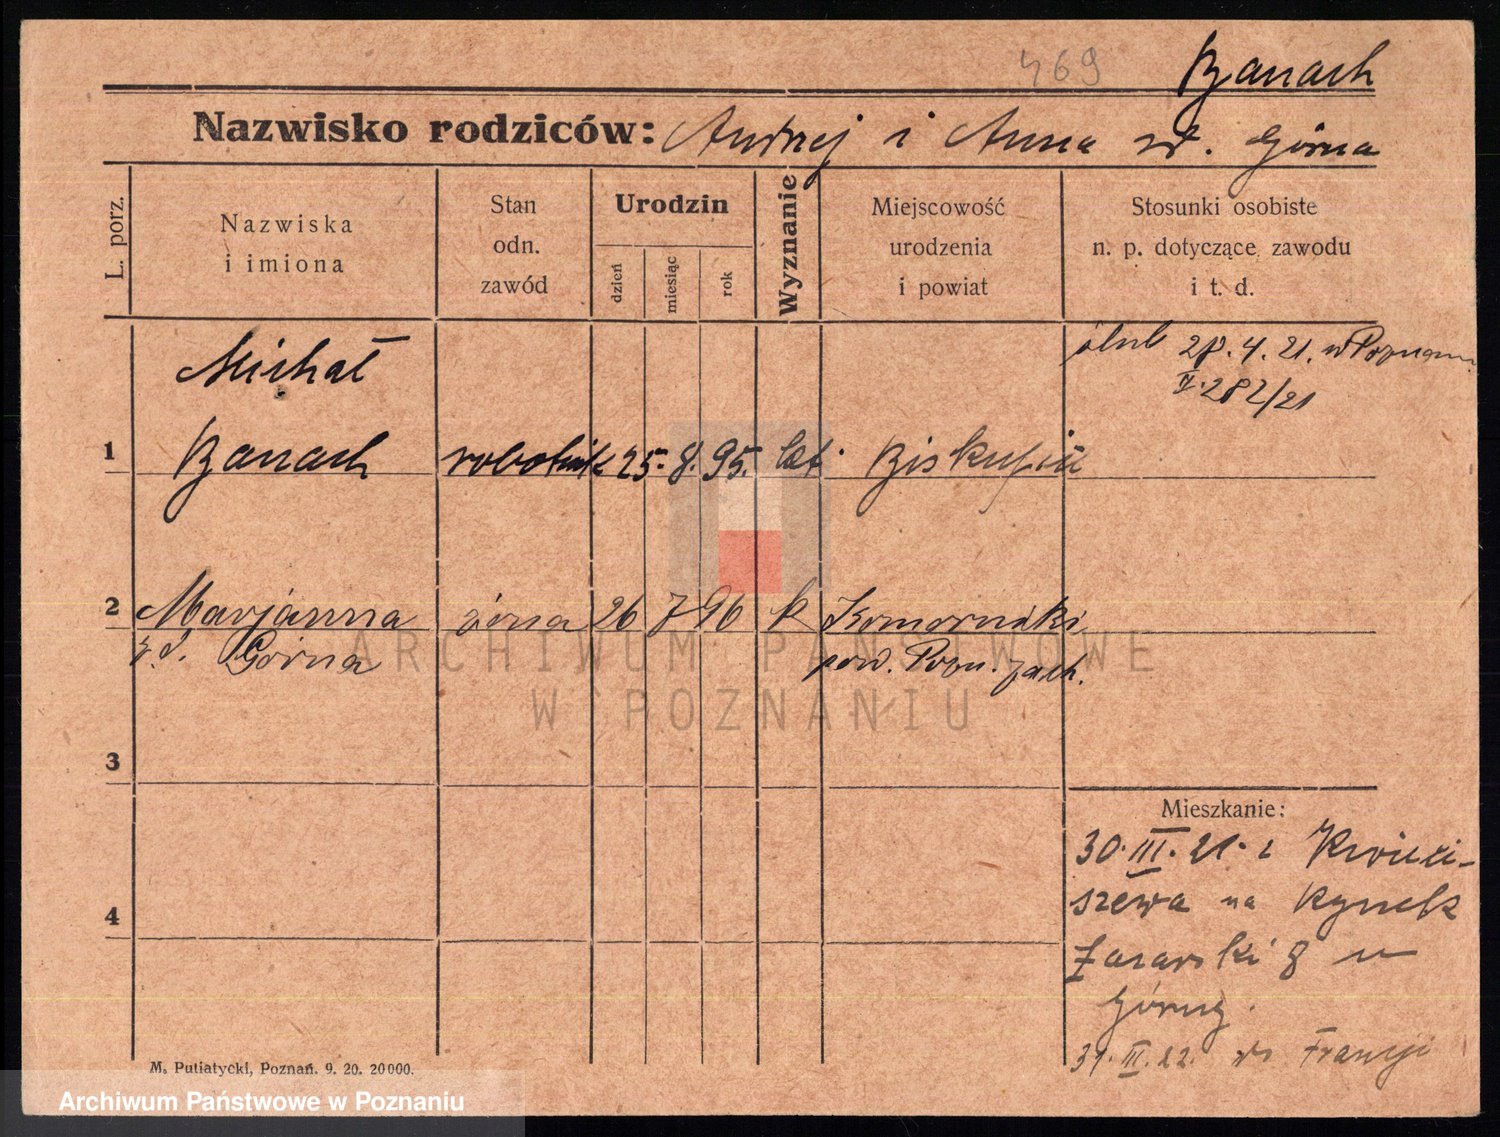 469
Banach
Nazwisko rodziców: Andrzej i Anna zd. Górna
L. porz.
Nazwiska
i imiona
Stan
odn.
zawód
Urodzin
dzień
miesiąc
rok
Wyznanie
Miejscowość
urodzenia
i powiat
Stosunki osobiste
n. p. dotyczące zawodu
i t. d.
ślub 28.4.21. w Poznaniu
282/21
Michał
1 Banach robotnik 25. 8. 95. kat. Biskupin
2 Marjanna żona 26 7 96 k Komorniki
z. d. Górna pow. Pozn. zach.
3
4
Mieszkanie:
30.III.21. z
szewa na Rynek
Łazarski 8 u
Górny.
31.III.22. do Francji
M. Putiatycki, Poznań. 9. 20. 20000.
ARCHIWUM PAŃSTWOWE
W POZNANIU
Archiwum Państwowe w Poznaniu